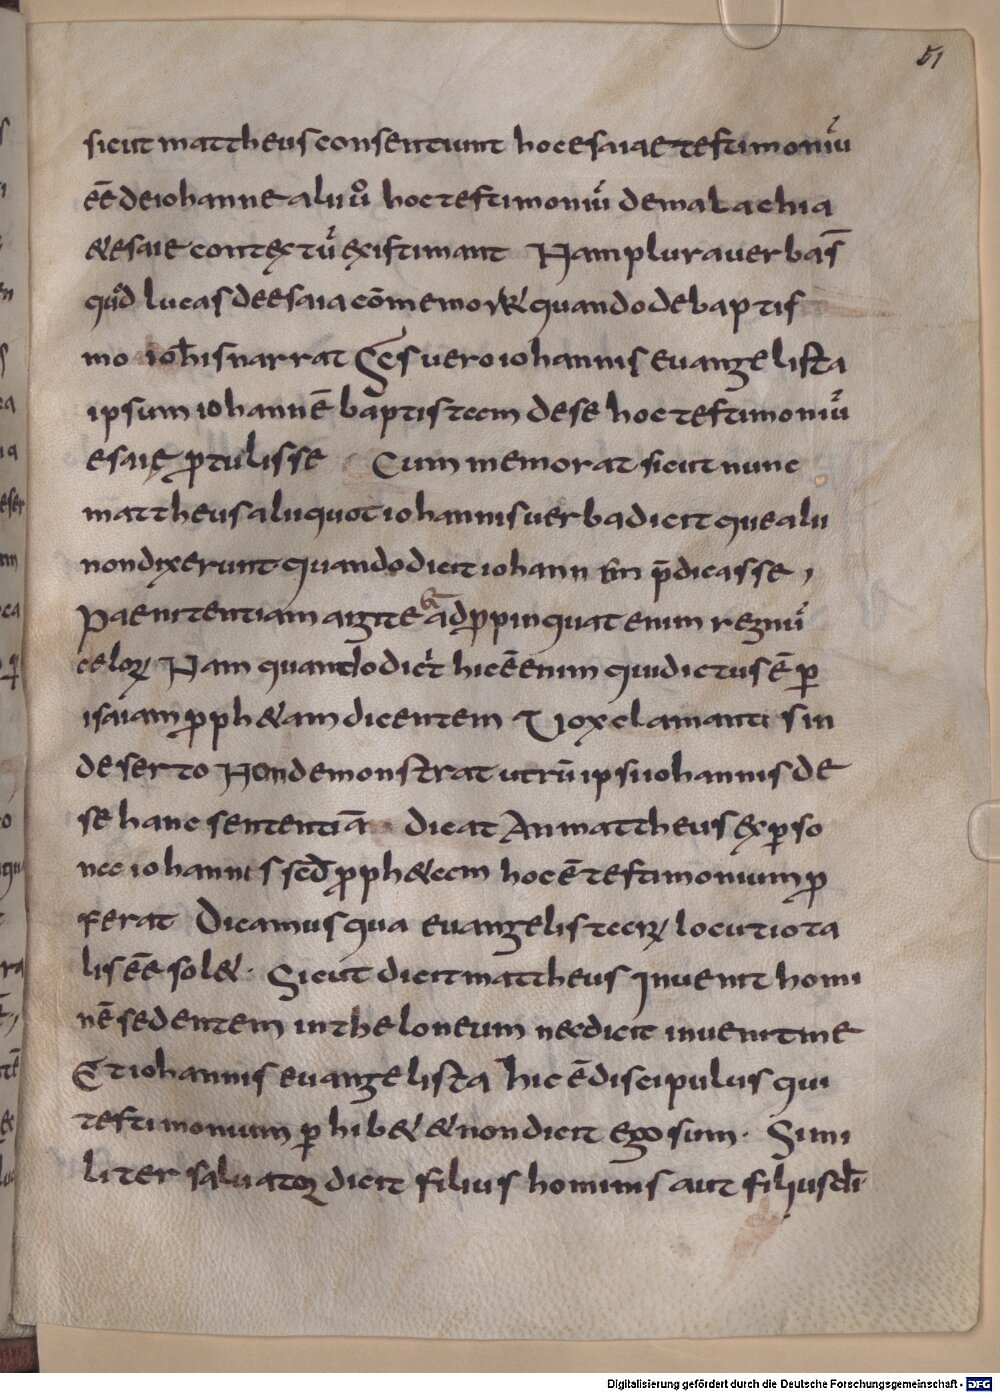 51
sicut mattheus consentiunt hoc esaiae testimoniū
ēē de iohanne alii ů hoc testimoniū de malachia
& esaie contextū existimant Nam plura uerba s̄
quod lucas de esaia cōmemor& quando de baptis
mo ioh̄is narrat Ces uero iohannis euangelista
ipsum iohannē baptistam de se hoc testimoniū
esaię ptulisse Cum memorat sicut nunc
mattheus aliquot iohannis uerba dicit que alii
non dixerunt quando dicit iohann p̄dicasse,
Paenitentiam agite adppinquat enim regnū
celoꝝ Nam quando dicit hic ē enim qui dictus ē p
isaiam pph&am dicentem Uox clamantis in
deserto Non demonstrat utrū ipsi iohannis de
se hanc sententiā dicat An mattheus ex pso
na iohannis sed pph&am hoc ē testimonium p
ferat Dicamus qua euangelistaꝝ locutio ta
lis ēē sol&· Sicut dicit mattheus Inuenit homi
nē sedentem in theloneum nec dicit inuenit me
Et iohannis euangelista hic ē discipulus qui
testimonium phib& & non dicit ego sum· Simi
liter saluator dicit filius hominis aut filius dī·
Digitalisierung gefördert durch die Deutsche Forschungsgemeinschaft - DFG